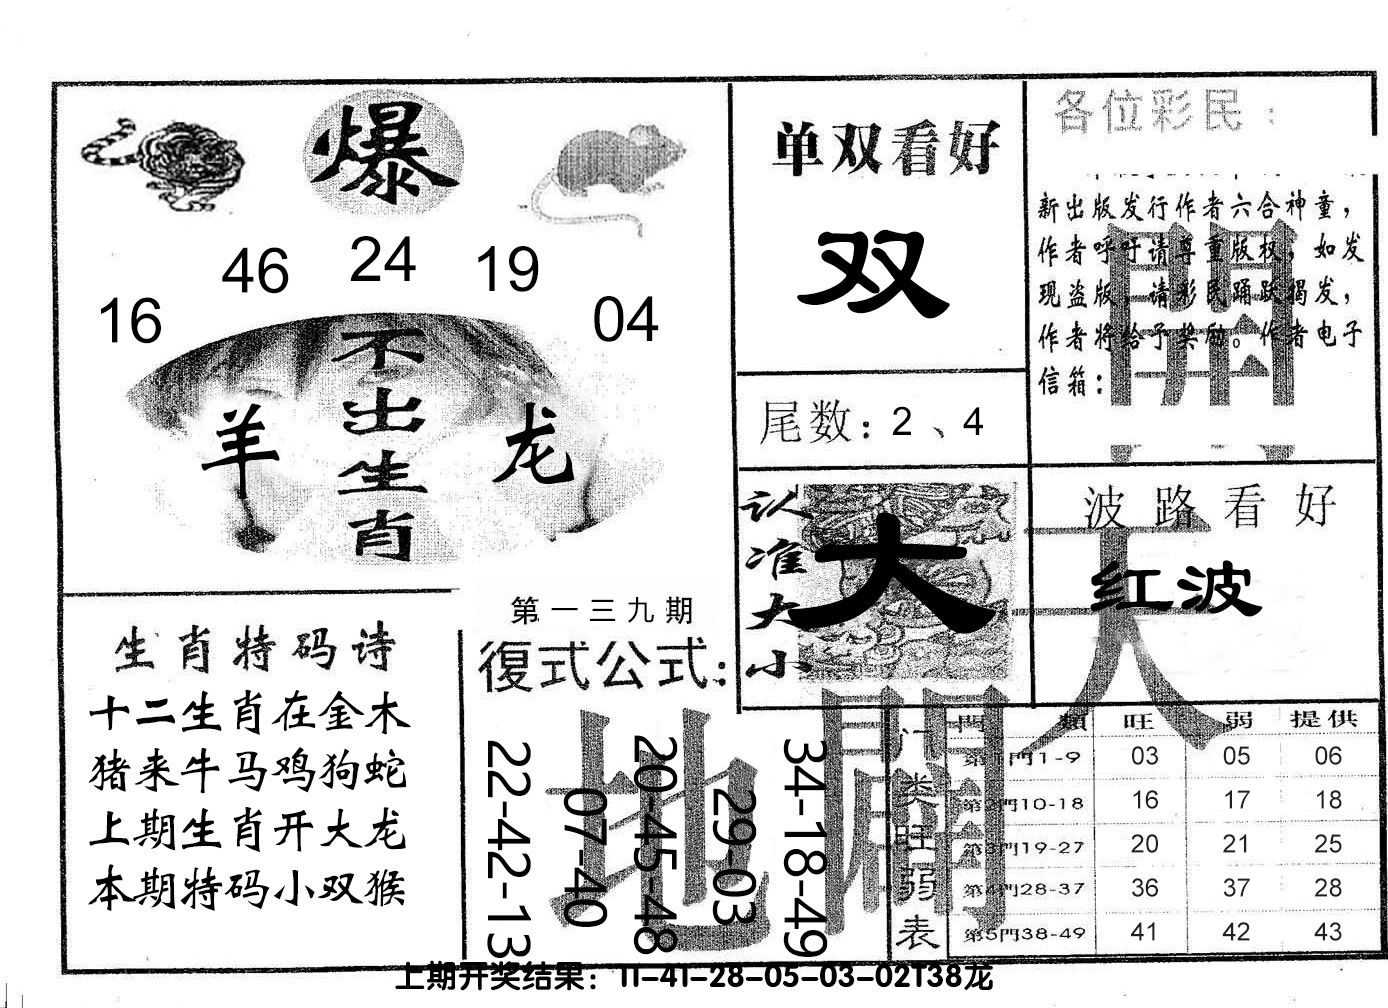 爆
16 46 24 19 04
不出生肖
羊 龙
单双看好
双
尾数：2、4
各位彩民：
新出版发行作者六合神童，
作者呼吁请尊重版权，如发
现盗版，请彩民踊跃揭发，
作者将给予奖励。作者电子
信箱：
開
认准大小
大
波路看好
红波
天
生肖特码诗
十二生肖在金木
猪来牛马鸡狗蛇
上期生肖开大龙
本期特码小双猴
第一三九期
復式公式：
22-42-13
07-40
20-45-48
29-03
34-18-49
地
門类旺弱表
門類 旺 弱 提供
第1門1-9 03 05 06
第2門10-18 16 17 18
第3門19-27 20 21 25
第4門28-37 36 37 28
第5門38-49 41 42 43
上期开奖结果：11-41-28-05-03-02T38龙